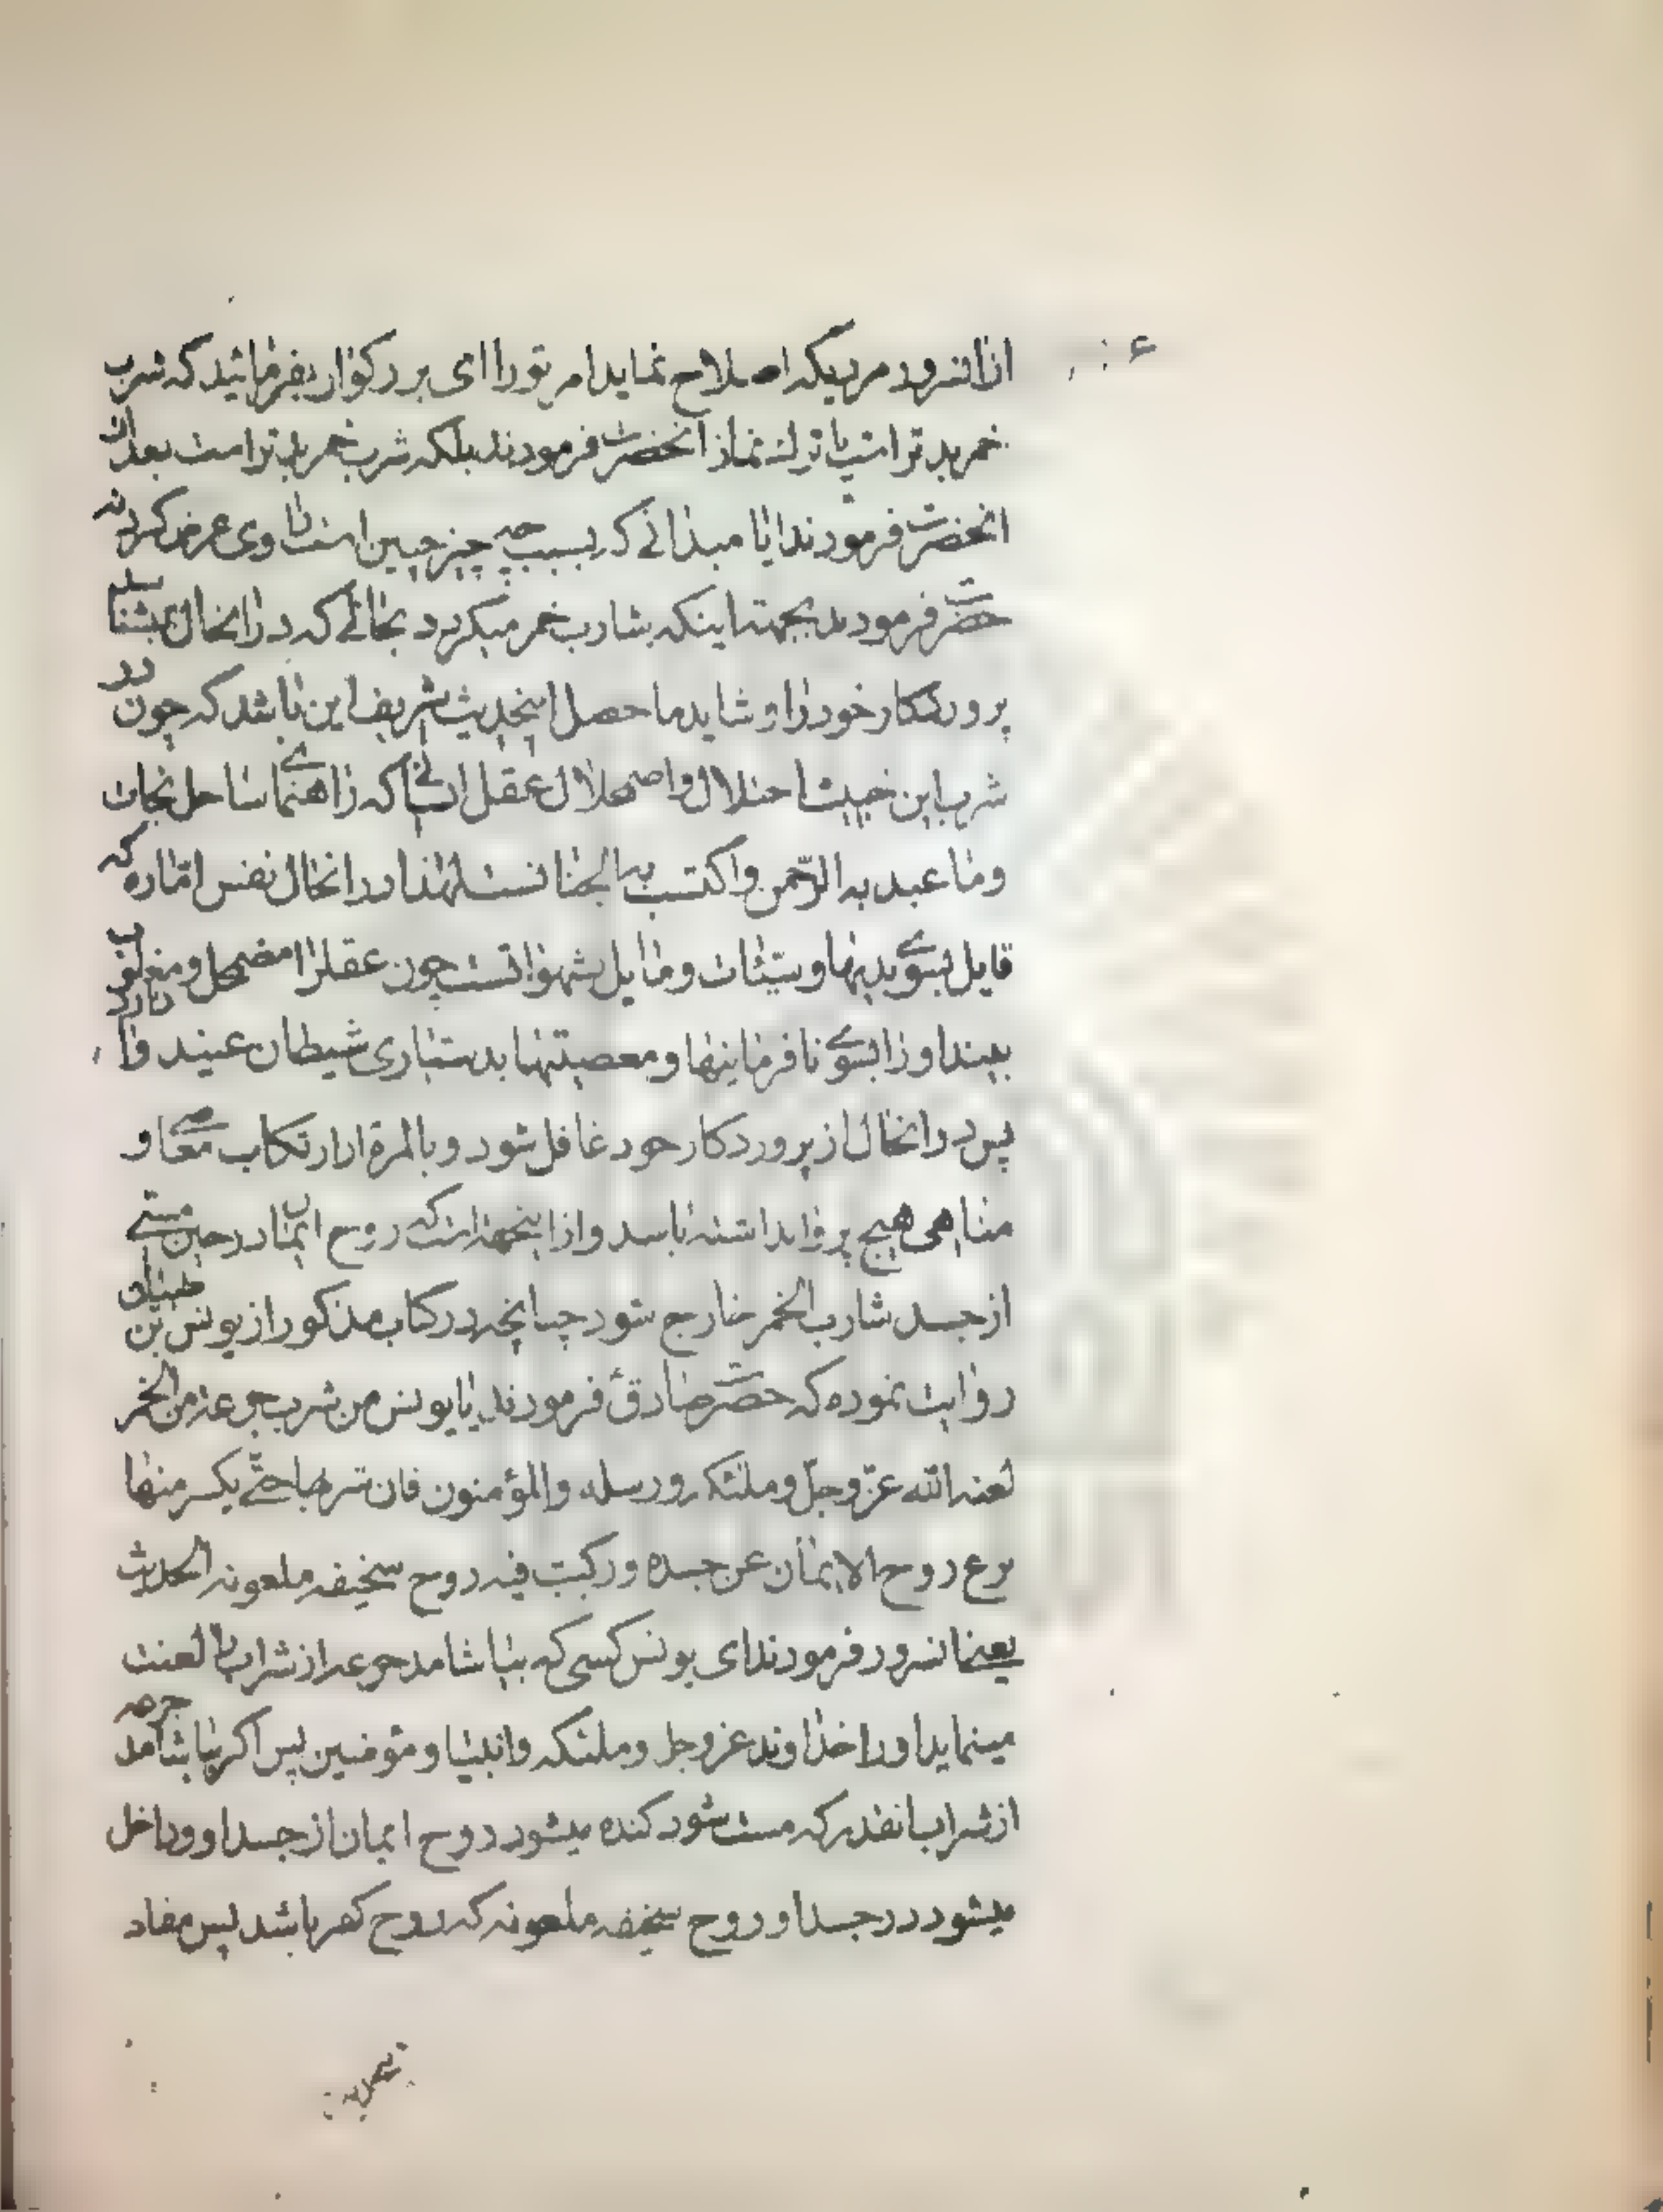 ازانسرور مردیکه اصلاح نماید امر تو را ای بزرکوار بفرمائید که شرب
خمر بدتر است یا ترک نماز انحضرت فرمودند بلکه شرب خمر بدتر است بعد ازان
انحضرت فرمودند ایا میدانی که بسبب چه چیز چنین است راوی عرض کرد نه
حضرت فرمودند بجهت اینکه شارب خمر میکردد بحالتی که در انحال نمیشناسد
پروردکار خود را و شاید ماحصل اینحدیث شریف این باشد که چون در
شرب این خبیث اختلال واضمحلال عقل انسانی که راهنمای ساحل نجات
وما عبد به الرحمن واکتسب به الجنانست لهذا در انحال نفس اماره که
قایل بسوی بدیها و سیئات و مایل بشهواتست چون عقل را مضمحل و مغلوب
بیند او را بسوی نافرمانیها و معصیتها بدستیاری شیطان عنید وا دارد
پس در انحال از پروردکار خود غافل شود و بالمرة از ارتکاب معاصی و
مناهی هیچ پروا نداشته باشد و از اینجهة است که روح ایمان در حین مستی
از جسد شارب الخمر خارج شود چنانچه در کتاب مذکور از یونس بن ظبیان
روایت نموده که حضرت صادقؑ فرمودند یا یونس من شرب جرعة من الخمر
لعنه الله عزّ وجلّ وملئکته ورسله والمؤمنون فان شربها حتّی یسکر منها
نزع روح الایمان عن جسده ورکبت فیه روح سخیفه ملعونه الحدیث
یعنی انسرور فرمودند ای یونس کسی که بیاشامد جرعه از شراب را لعنت
مینماید او را خداوند عز وجل وملئکه وانبیا و مؤمنین پس اکر بیاشامد جرعه
از شراب انقدر که مست شود کنده میشود روح ایمان از جسد او و داخل
میشود در جسد او روح سخیفه ملعونه که روح کفر باشد پس مفاد